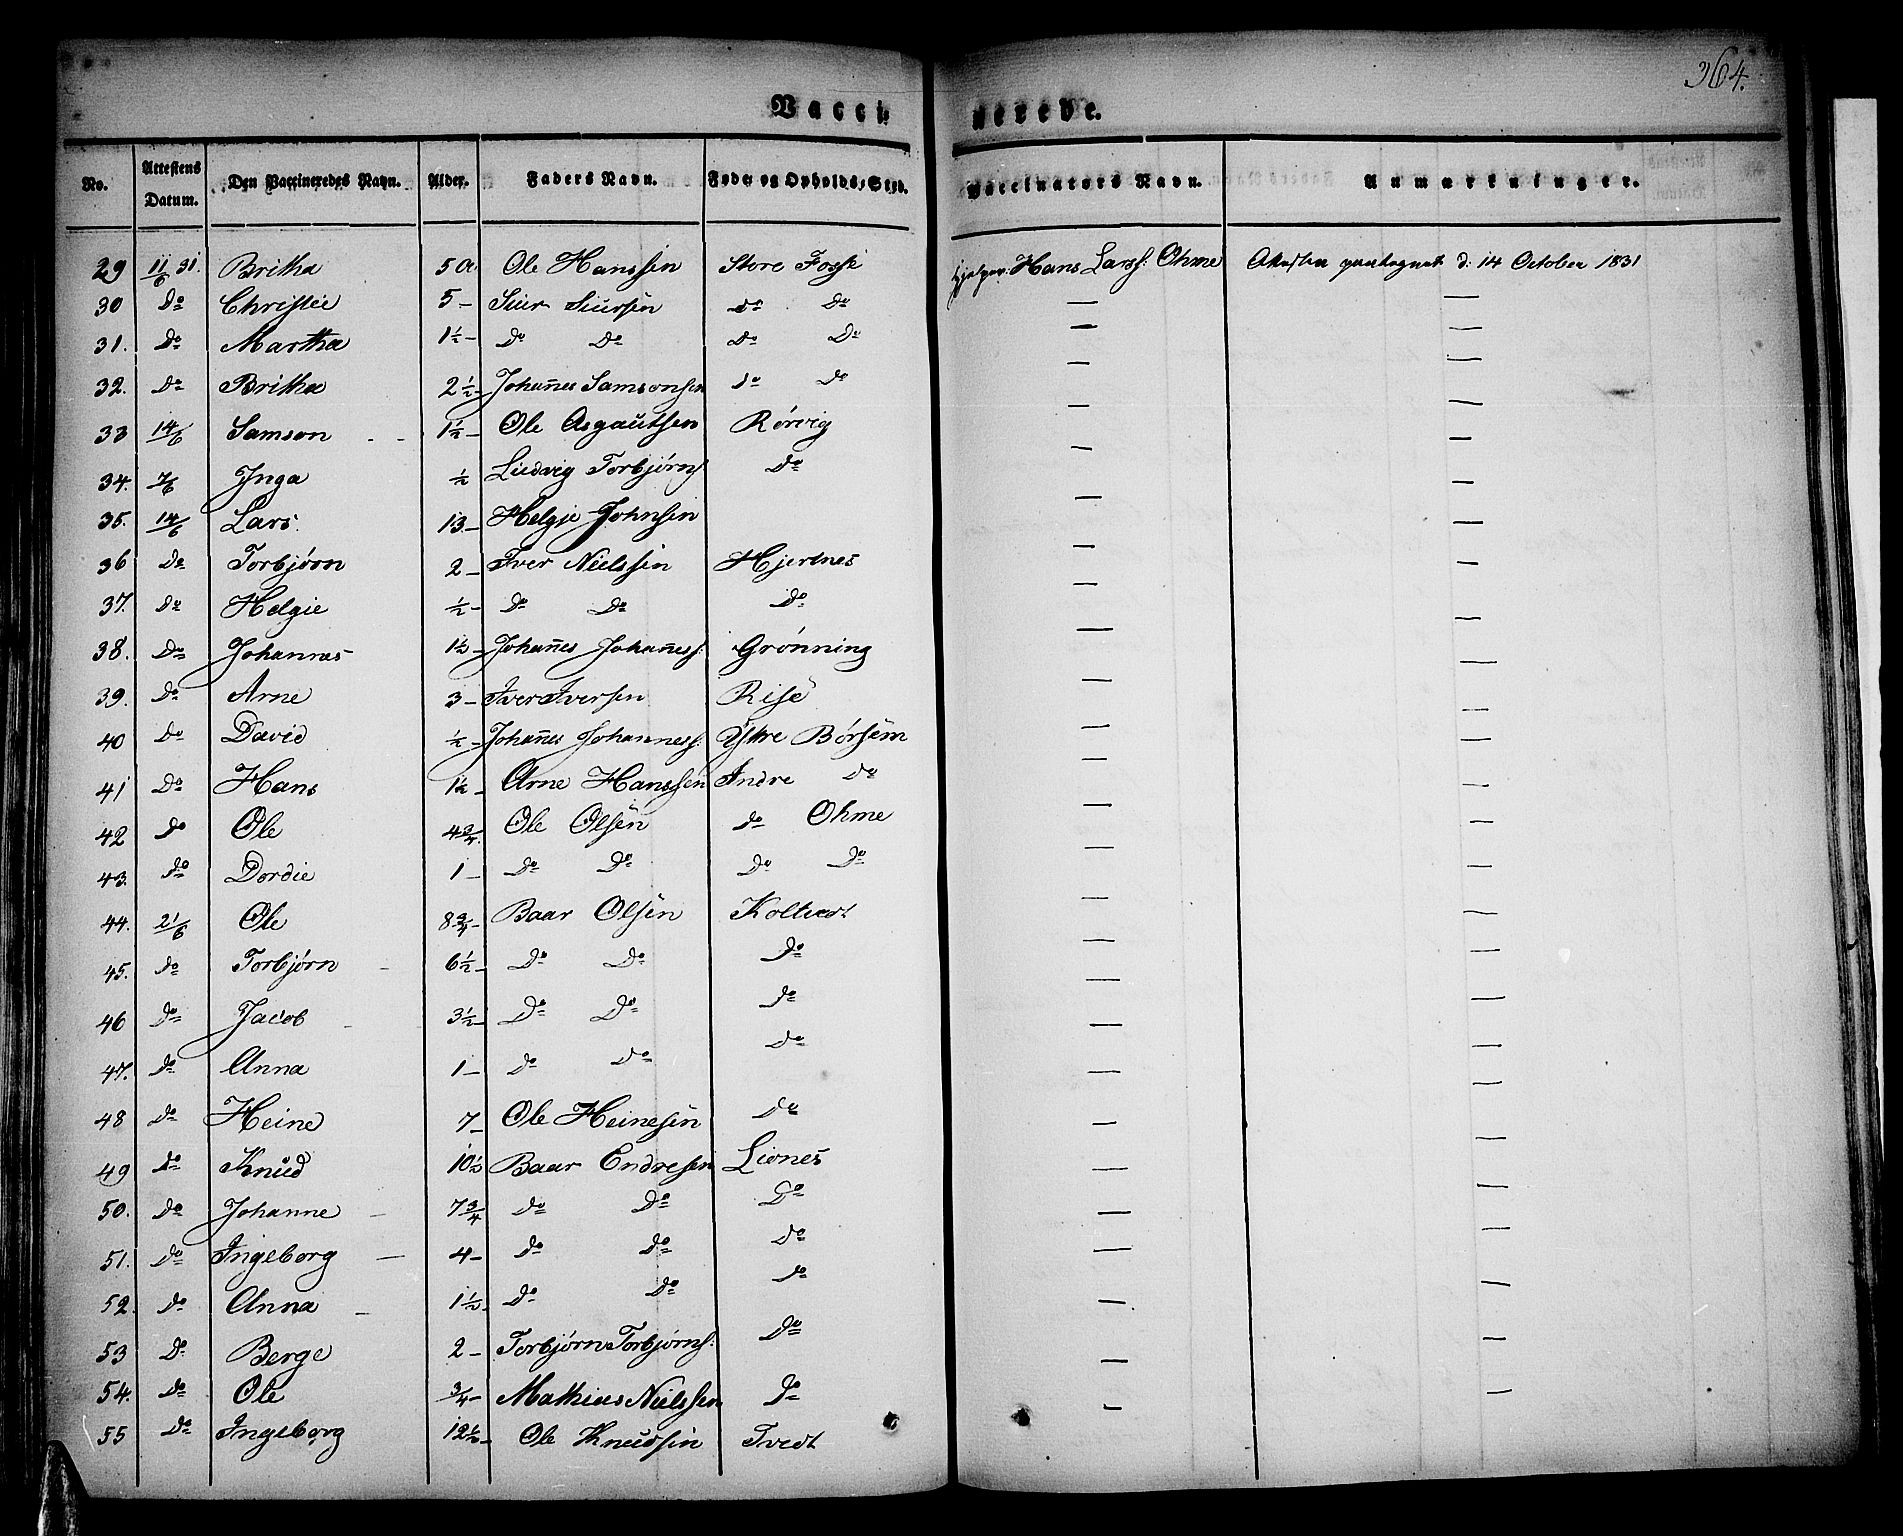 364.
Vaccinerede.
No. | Attestens Datum. | Den Vaccineredes Navn. | Alder. | Faders Navn. | Føde- og Opholds-Sted. | Vaccinators Navn. | Anmærkninger.
29 | 11/6 31. | Britha | 5 | Ole Hanssen | Store Fosse | Hans Larss: Ohme | d: 14 October 1831
30 | Do | Christie | 5 – | Siur Siursen | Do Do | — | —
31. | Do | Martha | 1½ – | Do Do | Do Do | — | —
32. | Do | Britha | 2½ – | Johañes Samsonsen | Do Do | — | —
33 | 14/6 | Samson | 1½ – | Ole Asgautsen | Rørvig | — | —
34. | 7/6 | Inga | ½ | Ludvig Torbjørns: | Do | — | —
35. | 14/6 | Lars. | 13 – | Helgje Johnsen | | — | —
36 | Do | Torbjørn | 2 – | Iver Nielssen | Hjertnes | — | —
37. | Do | Helgie | ½ – | Do Do | Do | — | —
38. | Do | Johannes | 1½ – | Johañes Johañess: | Grønning | — | —
39. | Do | Arne | 3 – | Iver Iversen | Rise | — | —
40 | Do | David | ½ – | Johañes Johanness: | Ÿttre Børsem | — | —
41 | Do | Hans | – | Arne Hanssen | Indre Do | — | —
42 | Do | Ole | 4¾. | Ole Olsen | Do Ohme | — | —
43. | Do | Dordie | 1 – | Do Do | Do Do | — | —
44. | 21/6 | Ole | 8¾ – | Baar Olsen | Koltvedt | — | —
45. | Do | Torbjørn | 6½ – | Do Do | Do | — | —
46 | Do | Jacob | 3½ – | Do Do | Do | — | —
47. | Do | Anna | 1 – | Do Do | Do | — | —
48 | Do | Heine | 7 – | Ole Heinesen | Do | — | —
49 | Do | Knud | 10½ | Baar Endresen | Liones | — | —
50. | Do | Johanne | 7¾ | Do Do | Do | — | —
51. | Do | Ingeborg | 4 – | Do Do | Do | — | —
52. | Do | Anna | 1½ | Do Do | Do | — | —
53 | Do | Berge | 2 – | Torbjørn Torbjørns: | Do | — | —
54. | Do | Ole | ¾ – | Mathias Nielssen | Do | — | —
55 | Do | Ingeborg | 12½ – | Ole Knudsen | Tvedt